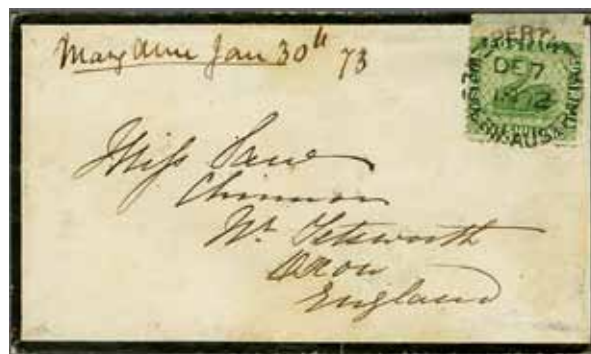 Mary Anne Jan 30th 73
PERT
DE 7
1872
WESTERN AUSTRALIA
Miss
Chinnor
Nr. Tetsworth
Oxon
England